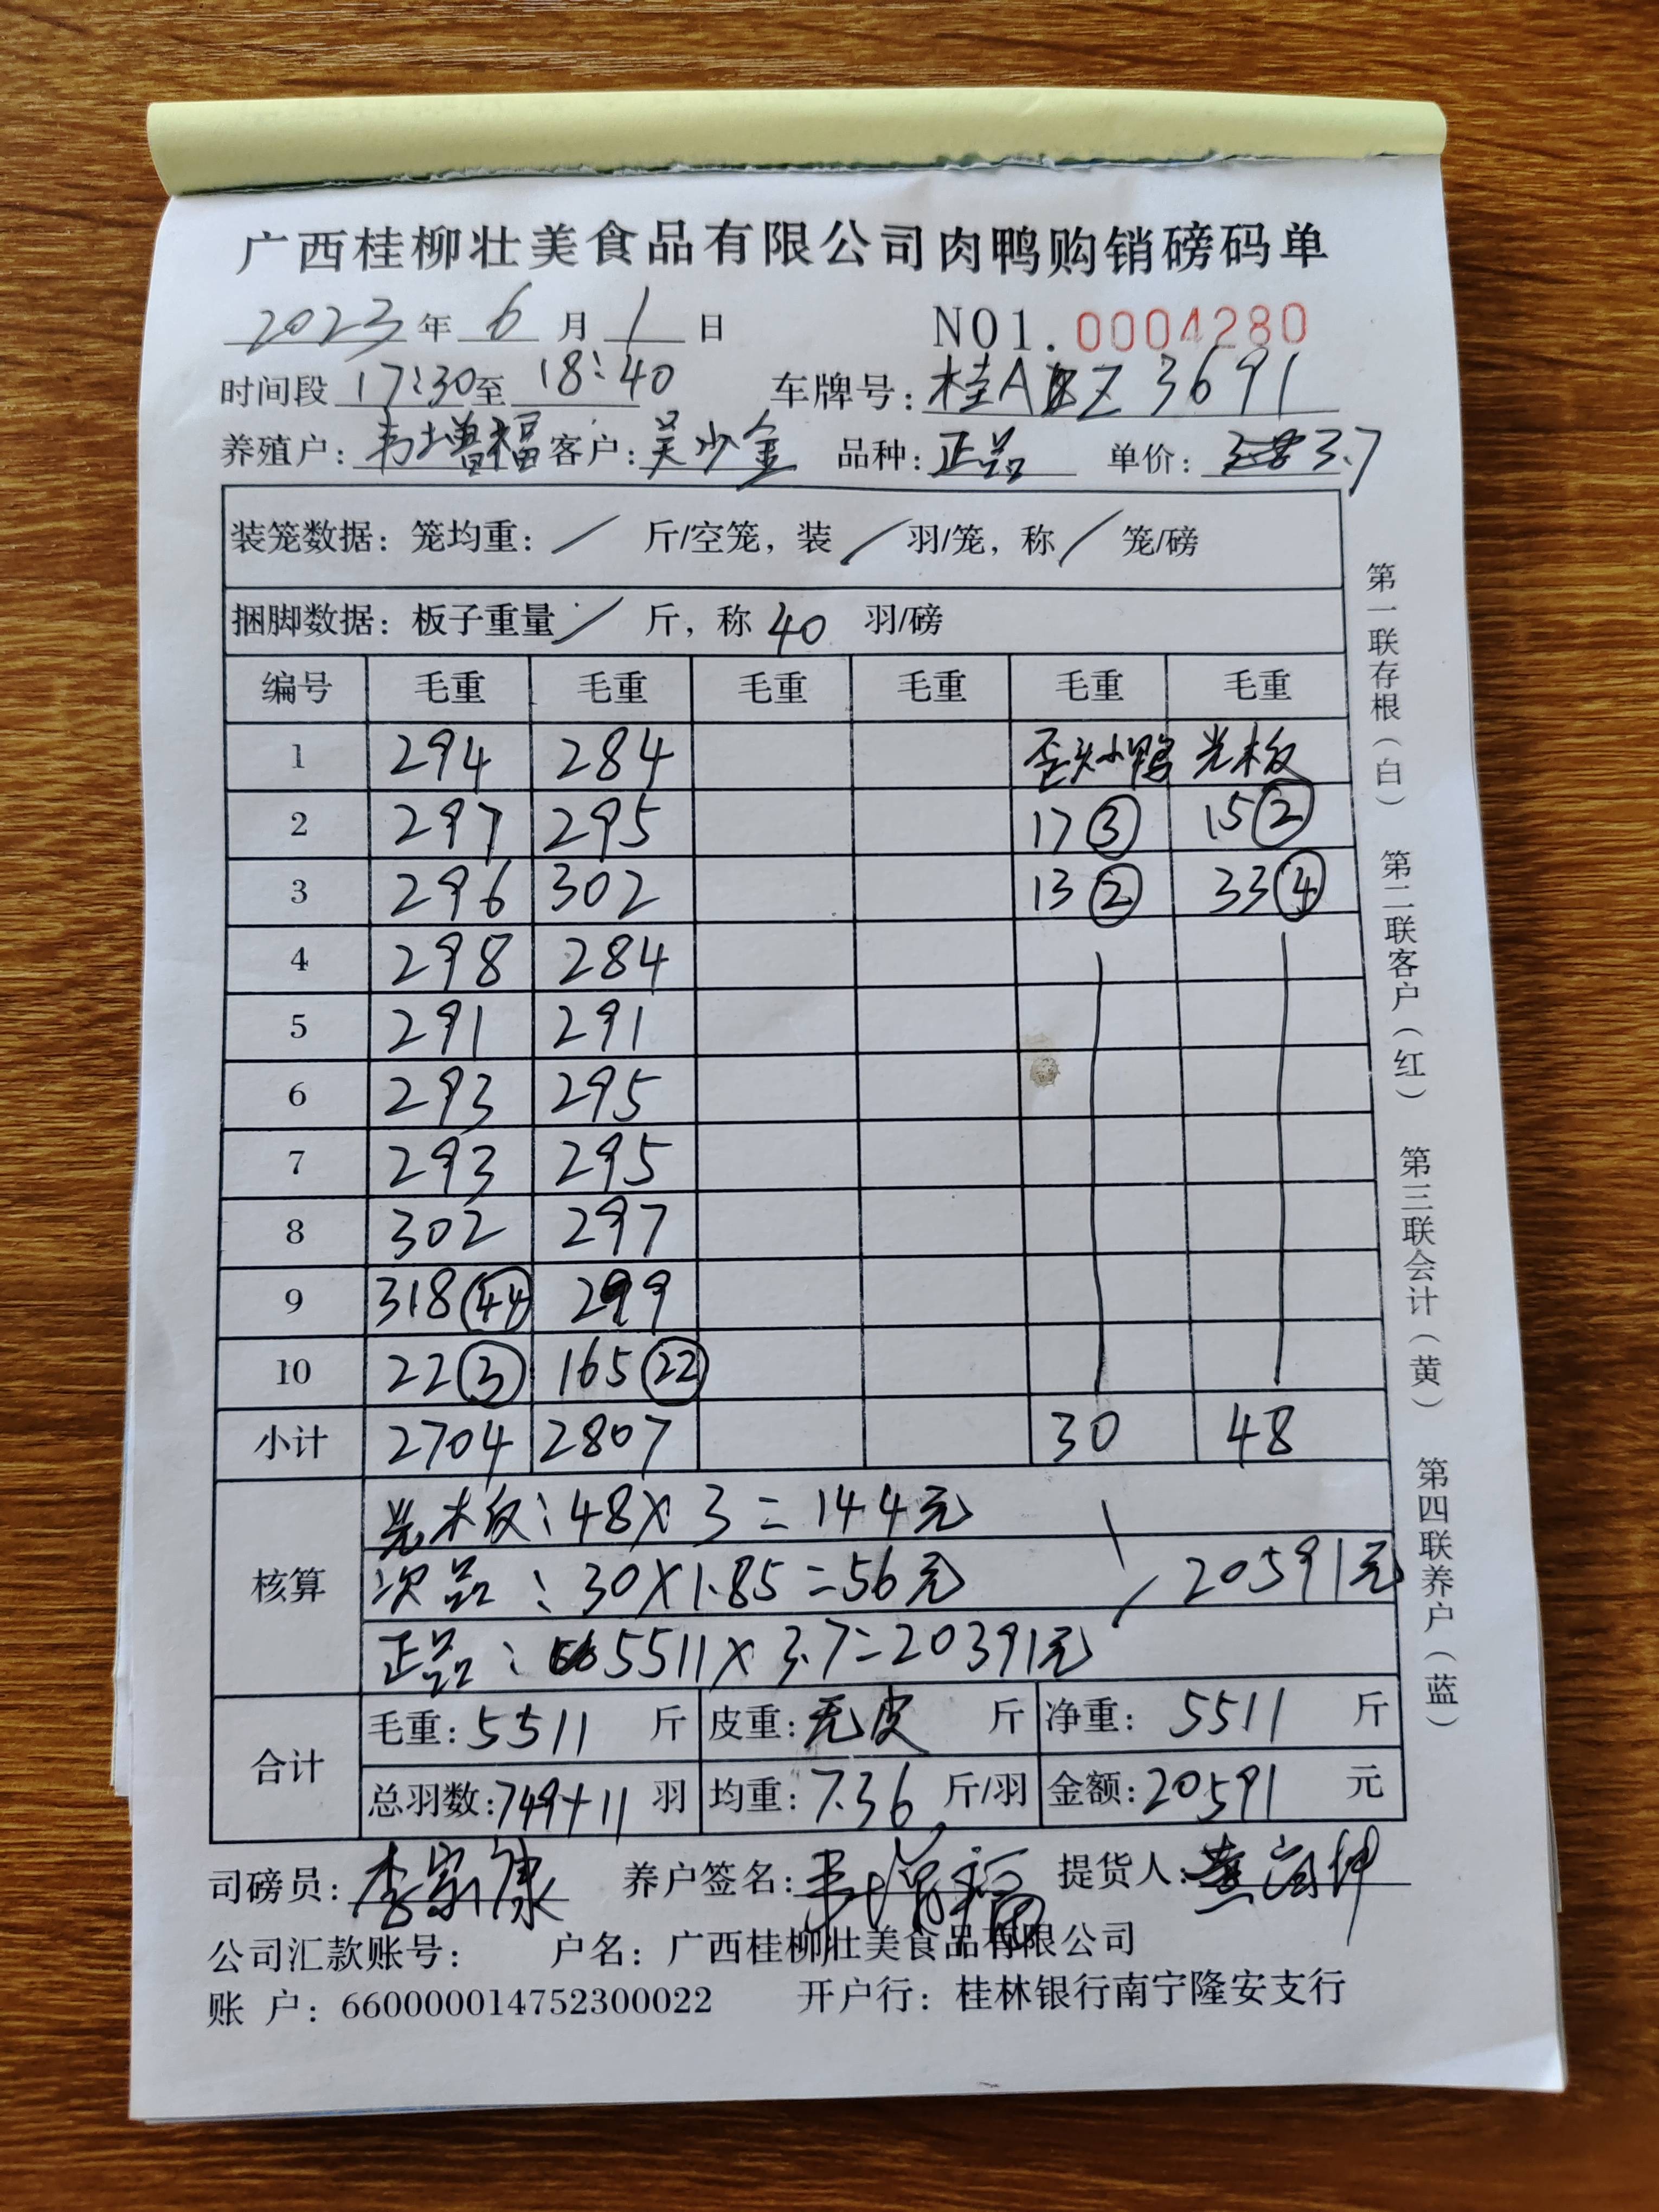 广西桂柳壮美食品有限公司肉鸭购销磅码单
2023年 6 月 1 日 NO1. 0004280
时间段 17:30至 18:40 车牌号: 桂A Z3691
养殖户: 韦增福 客户: 吴少金 品种: 正品 单价: 3.7
装笼数据: 笼均重: / 斤/空笼, 装 / 羽/笼, 称 / 笼/磅
捆脚数据: 板子重量 / 斤, 称 40 羽/磅
编号 毛重 毛重 毛重 毛重 毛重 毛重
1 294 284 歪头小鸭 光木板
2 297 295 17③ 15②
3 296 302 13② 33④
4 298 284
5 291 291
6 293 295
7 293 295
8 302 297
9 318㊹ 299
10 22③ 165㉒
小计 2704 2807 30 48
核算
光木板: 48×3=144元
次品: 30×1.85=56元 20591元
正品: 5511×3.7=20391元
合计
毛重: 5511 斤 皮重: 无皮 斤 净重: 5511 斤
总羽数: 749+11 羽 均重: 7.36 斤/羽 金额: 20591 元
司磅员: 李家康 养户签名: 韦增福 提货人:
公司汇款账号: 户名: 广西桂柳壮美食品有限公司
账 户: 660000014752300022 开户行: 桂林银行南宁隆安支行
第一联存根(白) 第二联客户(红) 第三联会计(黄) 第四联养户(蓝)